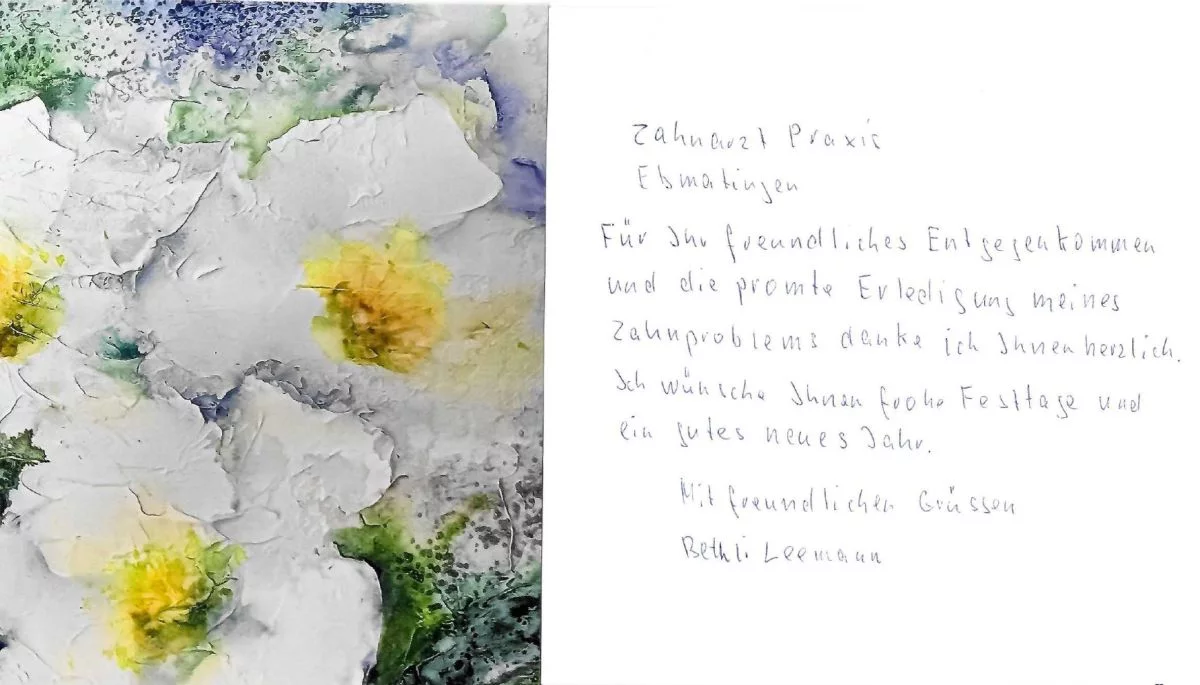 Zahnarzt Praxis
Ebmatingen
Für Ihr freundliches Entgegenkommen
und die promte Erledigung meines
Zahnproblems danke ich Ihnen herzlich.
Ich wünsche Ihnen frohe Festtage und
ein gutes neues Jahr.
Mit freundlichen Grüssen
Bethli Leemann